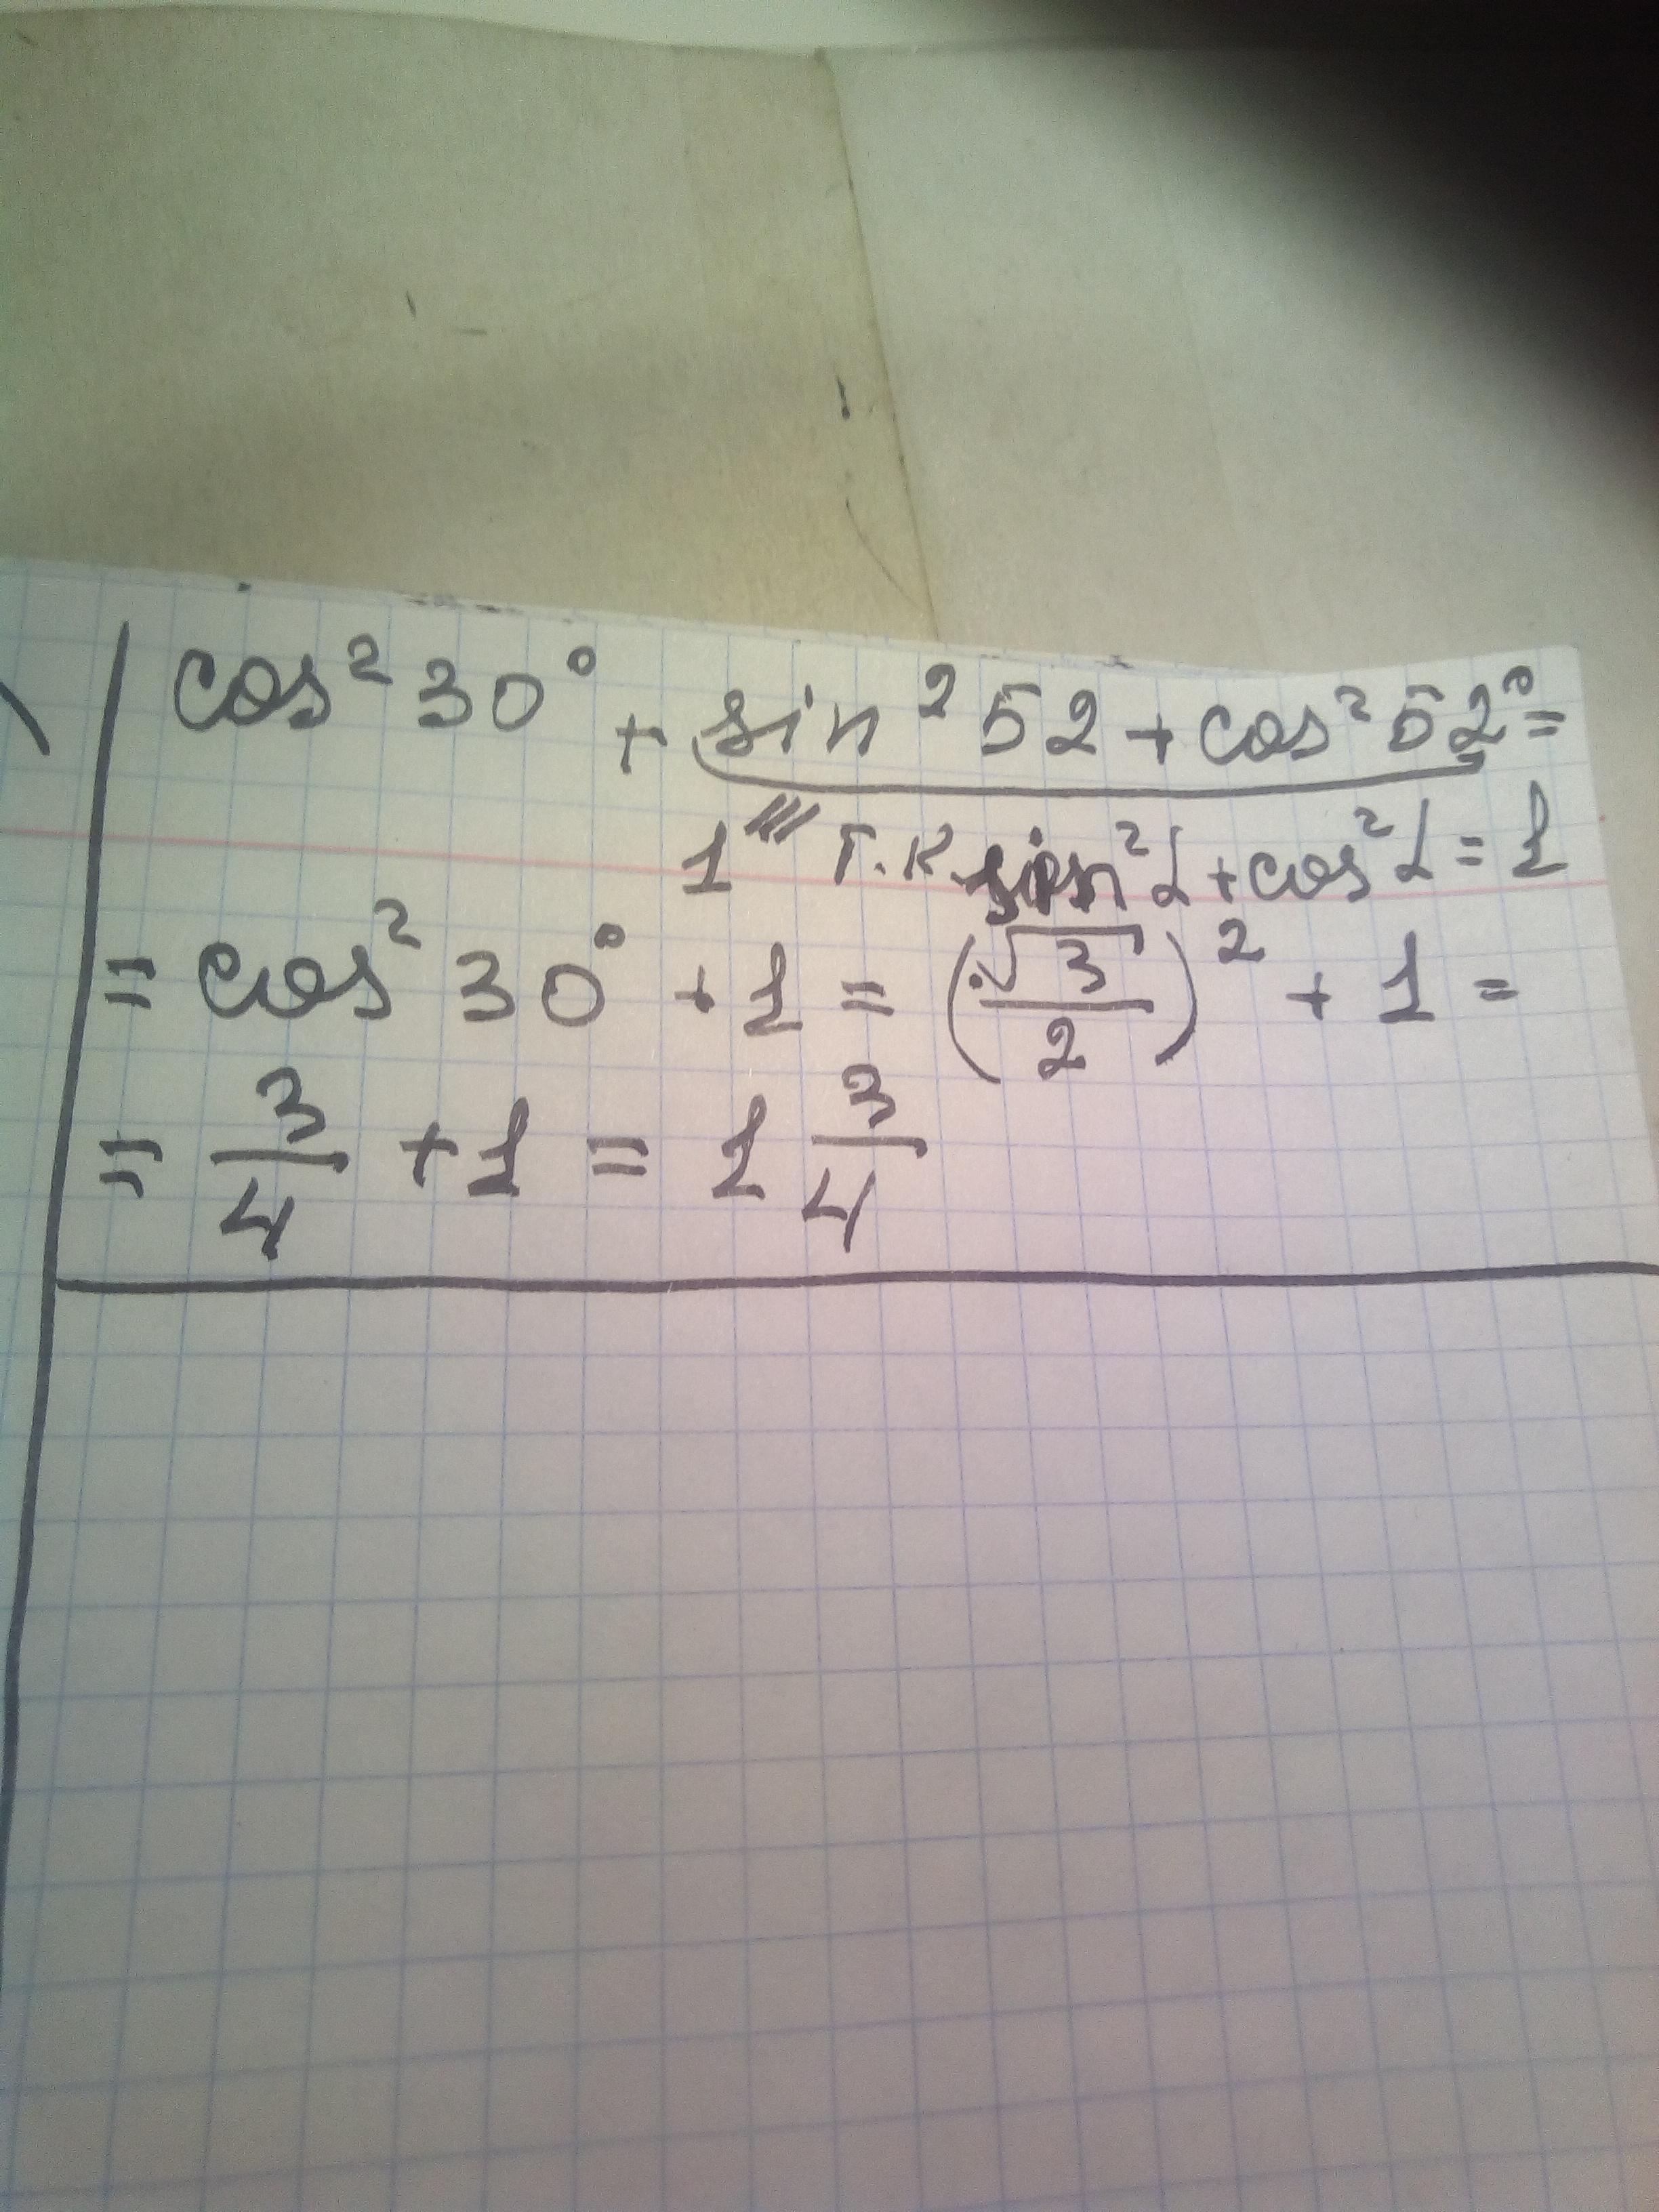 cos² 30° + sin² 52 + cos² 52° =
1 т.к. sin²α + cos²α = 1
= cos² 30° + 1 = (√3/2)² + 1 =
= 3/4 + 1 = 1 3/4